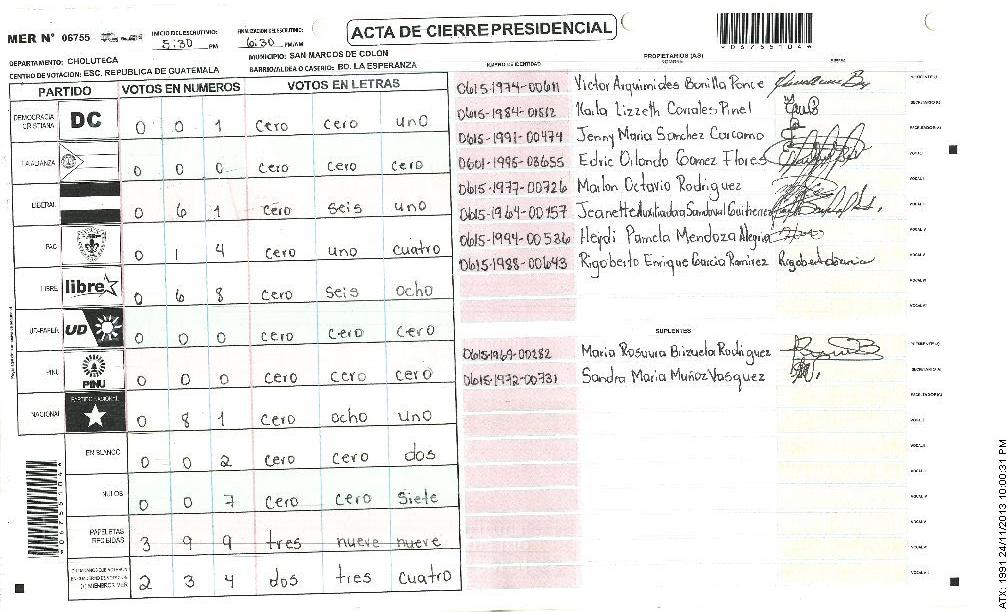 ACTA DE CIERRE PRESIDENCIAL
MER N° 06755
INICIO DEL ESCRUTINIO: 5:30 PM
FINALIZACION DEL ESCRUTINIO: 6:30 PM/AM
0675510 4
DEPARTAMENTO: CHOLUTECA
MUNICIPIO: SAN MARCOS DE COLON
CENTRO DE VOTACION: ESC. REPUBLICA DE GUATEMALA
BARRIO/ALDEA O CASERIO: BO. LA ESPERANZA
PARTIDO VOTOS EN NUMEROS VOTOS EN LETRAS
DEMOCRACIA CRISTIANA DC 0 0 1 cero cero uno
LA ALIANZA 0 0 0 cero cero cero
LIBERAL 0 6 1 cero seis uno
PAC 0 1 4 cero uno cuatro
LIBRE libre 0 6 8 cero seis ocho
UD-FAPER UD 0 0 0 cero cero cero
PINU PINU 0 0 0 cero cero cero
NACIONAL PARTIDO NACIONAL 0 8 1 cero ocho uno
EN BLANCO 0 0 2 cero cero dos
NULOS 0 0 7 cero cero siete
PAPELETAS RECIBIDAS 3 9 9 tres nueve nueve
2 3 4 dos tres cuatro
PROPIETARIOS (AS)
NUMERO DE IDENTIDAD NOMBRE FIRMA
0615-1974-00611 Victor Arquimides Bonilla Ponce PRESIDENTE(A)
0615-1984-01512 Karla Lizzeth Corrales Pinel SECRETARIO(A)
0615-1991-00474 Jenny Maria Sanchez Carcamo ESCRUTADOR(A)
0601-1995-03655 Edric Orlando Gomez Flores VOCAL I
0615-1977-00726 Marlon Octavio Rodriguez VOCAL II
0615-1964-00157 Jeanette Auxiliadora Sandoval Guitierrez VOCAL III
0615-1994-00536 Heydi Pamela Mendoza Alegria VOCAL IV
0615-1988-00643 Rigoberto Enrique Garcia Ramirez Rigoberto Garcia VOCAL V
SUPLENTES
0615-1969-00282 Maria Rosaura Brizuela Rodriguez PRESIDENTE(A)
0615-1972-00731 Sandra Maria Muñoz Vasquez SECRETARIO(A)
ATX: 1991 24/11/2013 10:00:31 PM